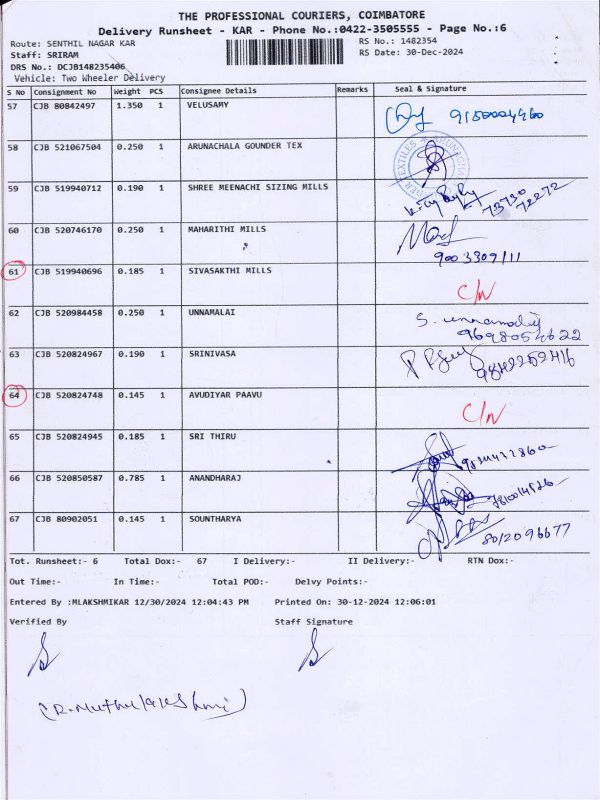 THE PROFESSIONAL COURIERS, COIMBATORE
Delivery Runsheet - KAR - Phone No.:0422-3505555 - Page No.:6
Route: SENTHIL NAGAR KAR RS No.: 1482354
Staff: SRIRAM RS Date: 30-Dec-2024
DRS No.: DCJB148235406
Vehicle: Two Wheeler Delivery
S No Consignment No Weight PCS Consignee Details Remarks Seal & Signature
57 CJB 80842497 1.350 1 VELUSAMY
58 CJB 521067504 0.250 1 ARUNACHALA GOUNDER TEX
59 CJB 519940712 0.190 1 SHREE MEENACHI SIZING MILLS 73730 72272
60 CJB 520746170 0.250 1 MAHARITHI MILLS
9003309111
61 CJB 519940696 0.185 1 SIVASAKTHI MILLS C/N
62 CJB 520984458 0.250 1 UNNAMALAI
9698054622
63 CJB 520824967 0.190 1 SRINIVASA 9842252416
64 CJB 520824748 0.145 1 AVUDIYAR PAAVU C/N
65 CJB 520824945 0.185 1 SRI THIRU
66 CJB 520850587 0.785 1 ANANDHARAJ
67 CJB 80902051 0.145 1 SOUNTHARYA 8012096677
Tot. Runsheet:- 6 Total Dox:- 67 I Delivery:- II Delivery:- RTN Dox:-
Out Time:- In Time:- Total POD:- Delvy Points:-
Entered By :MLAKSHMIKAR 12/30/2024 12:04:43 PM Printed On: 30-12-2024 12:06:01
Verified By Staff Signature